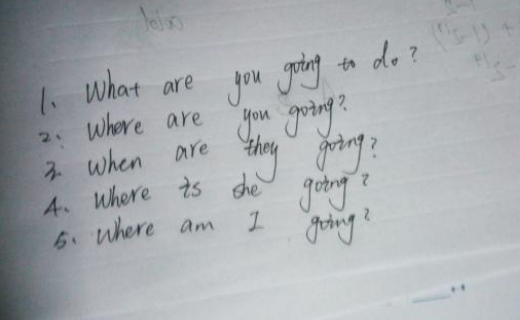 1. What are you going to do?
2. Where are you going?
3. When are they going?
4. Where is she going?
5. Where am I going?